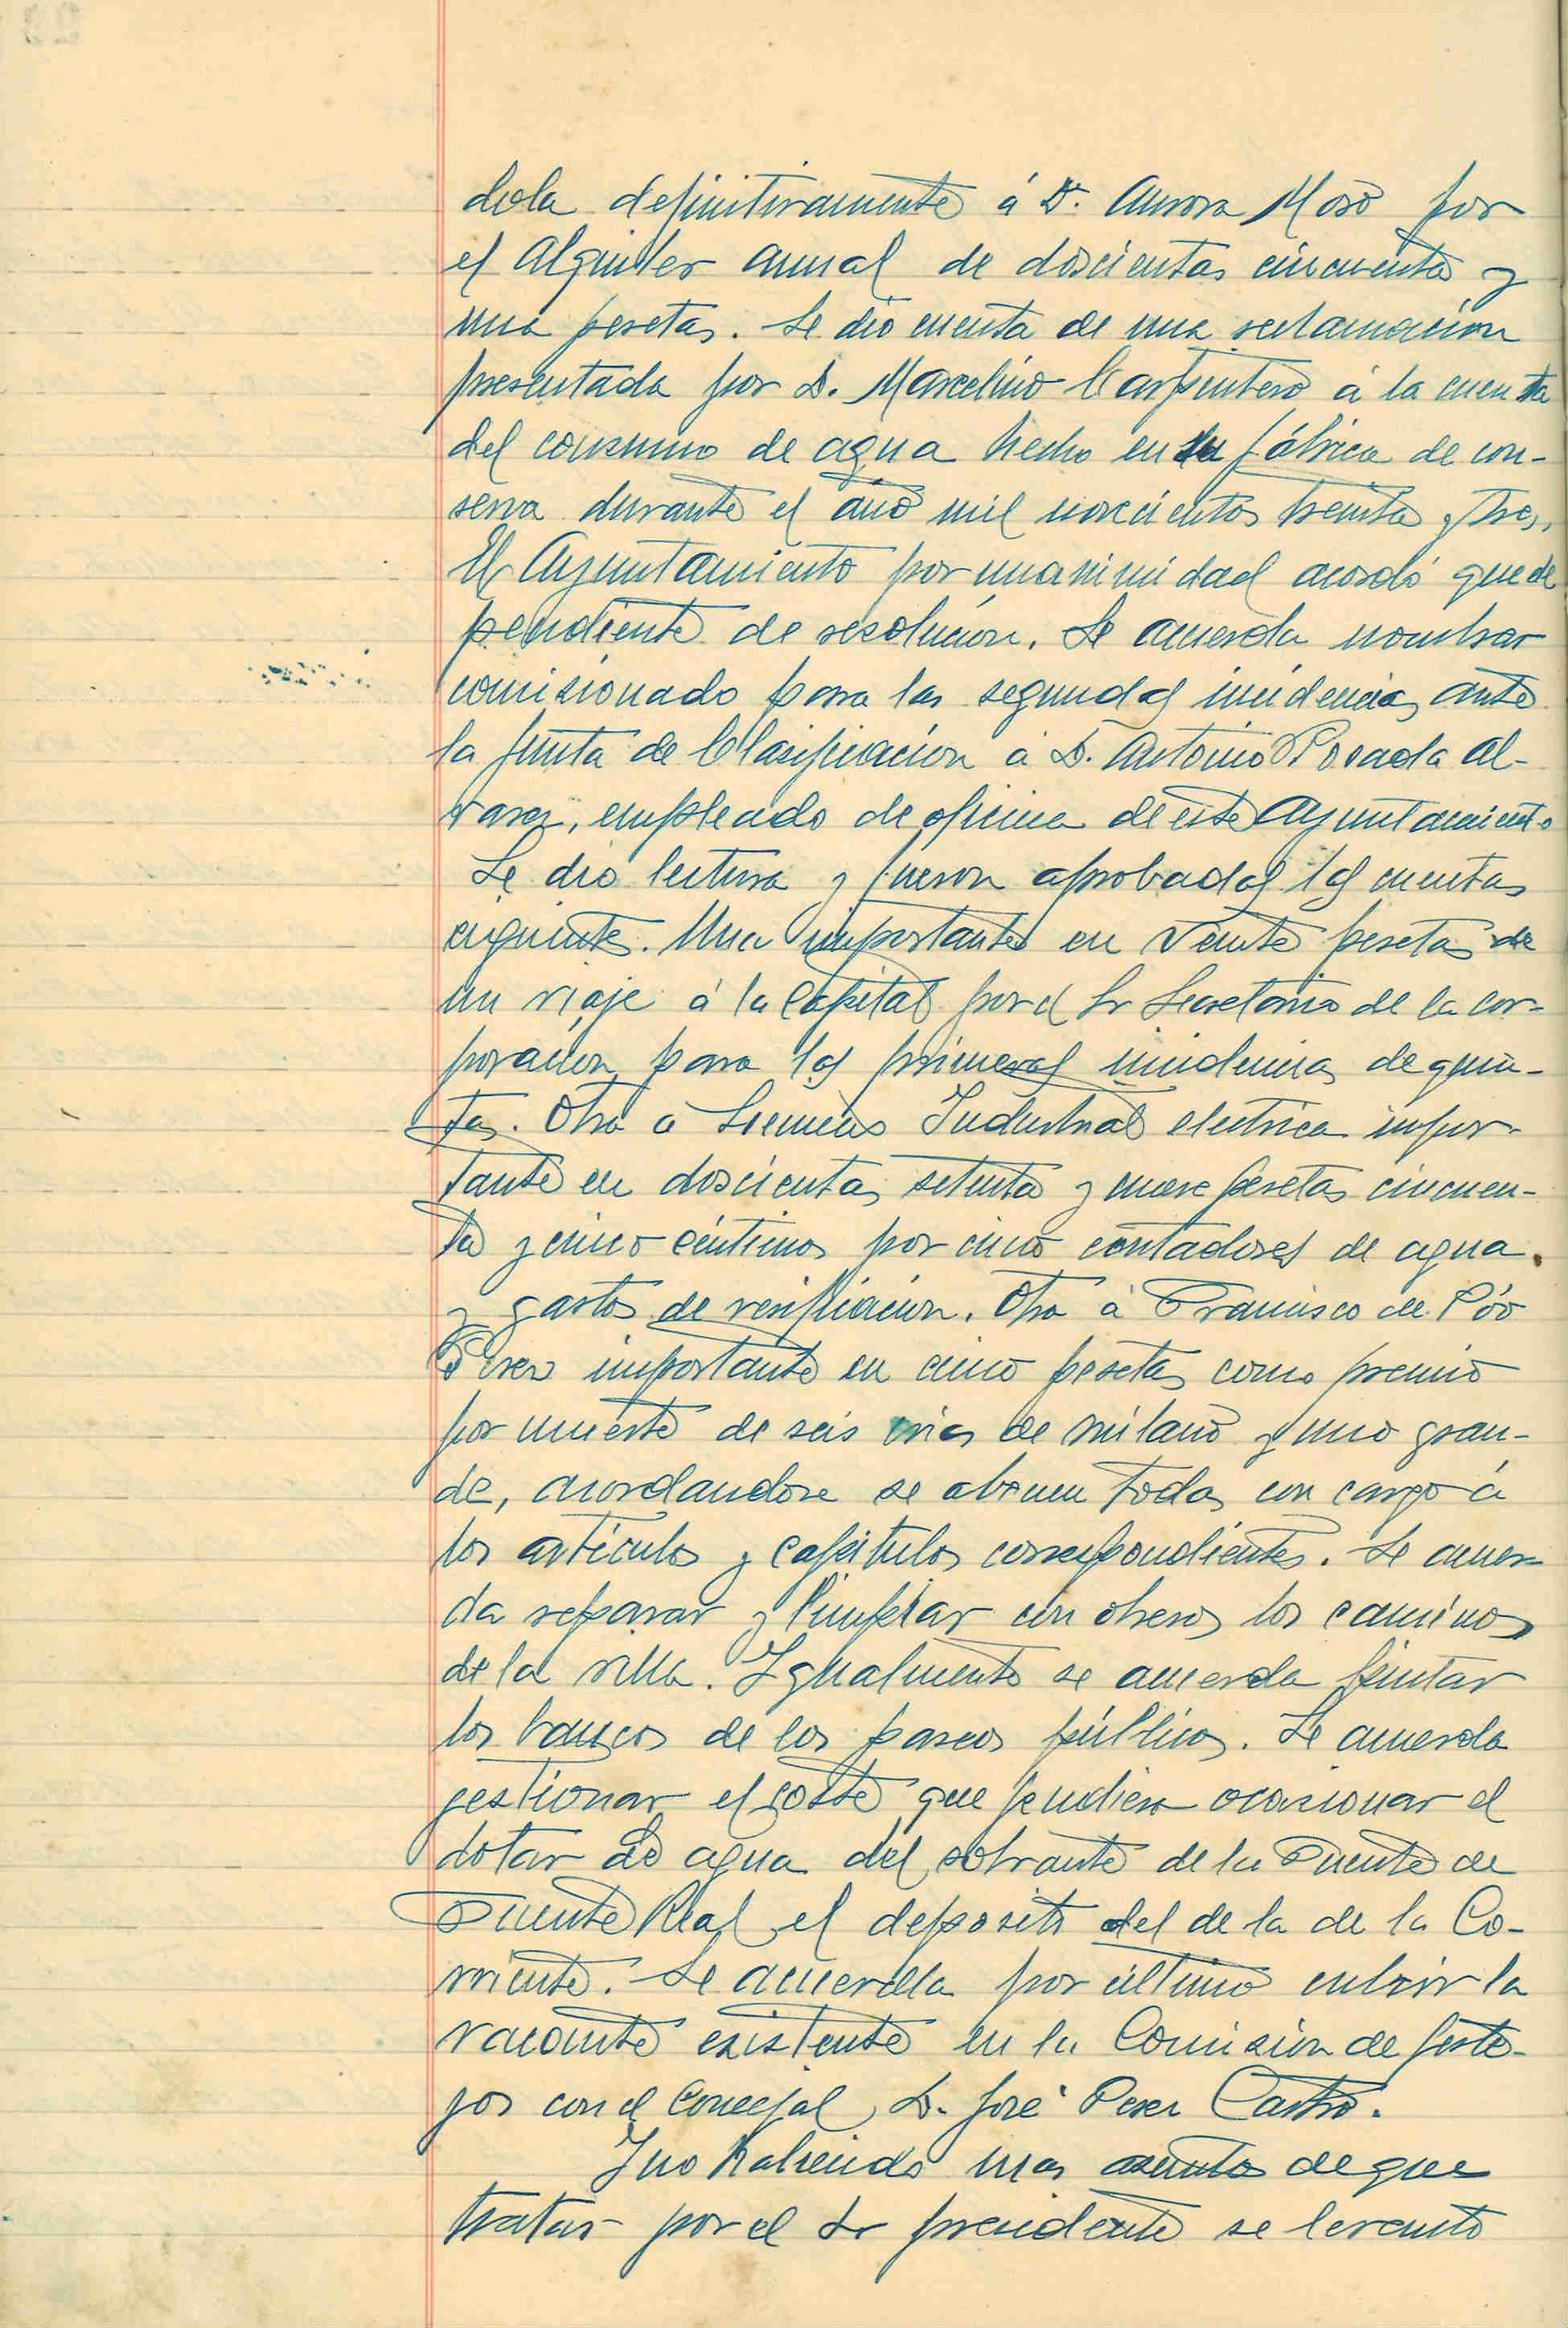 dola definitivamente á Dª. Aurora Moro por
el alquiler anual de doscientas cincuenta y
una pesetas. Se dio cuenta de una reclamación
presentada por D. Marcelino Carpintero á la cuenta
del consumo de agua hecho en su fábrica de con-
serva durante el año mil novecientos treinta y tres.
El Ayuntamiento por unanimidad acordó quede
pendiente de resolución. Se acuerda nombrar
comisionado para las segundas incidencias ante
la Junta de Clasificación á D. Antonio Posada Al-
varez, empleado de oficina de este Ayuntamiento
Se dio lectura y fueron aprobadas las cuentas
siguientes. Una importante en veinte pesetas de
un viaje á la Capital por el Sr Secretario de la cor-
poración para las primeras incidencias de quin-
tas. Otra a Siemens Industrial electrica impor-
tante en doscientas setenta y nueve pesetas cincuen-
ta y cinco céntimos por cinco contadores de agua
y gastos de verificación. Otra á Francisco de Póo
Perez importante en cinco pesetas como premio
por muerte de seis crias de milano y uno gran-
de, acordandose se abonen todas con cargo á
los artículos y capítulos correspondientes. Se acuer-
da reparar y limpiar con obreros los caminos
de la villa. Igualmente se acuerda pintar
los bancos de los paseos públicos. Se acuerda
gestionar el coste que pudiera ocasionar el
dotar de agua del sobrante de la Fuente de
Fuente Real el deposito del de la de la Co-
rriente. Se acuerda por último cubrir la
vacante existente en la Comision de feste-
jos con el Concejal D. José Perez Castro.
Y no habiendo mas asuntos de que
tratar por el Sr presidente se levantó